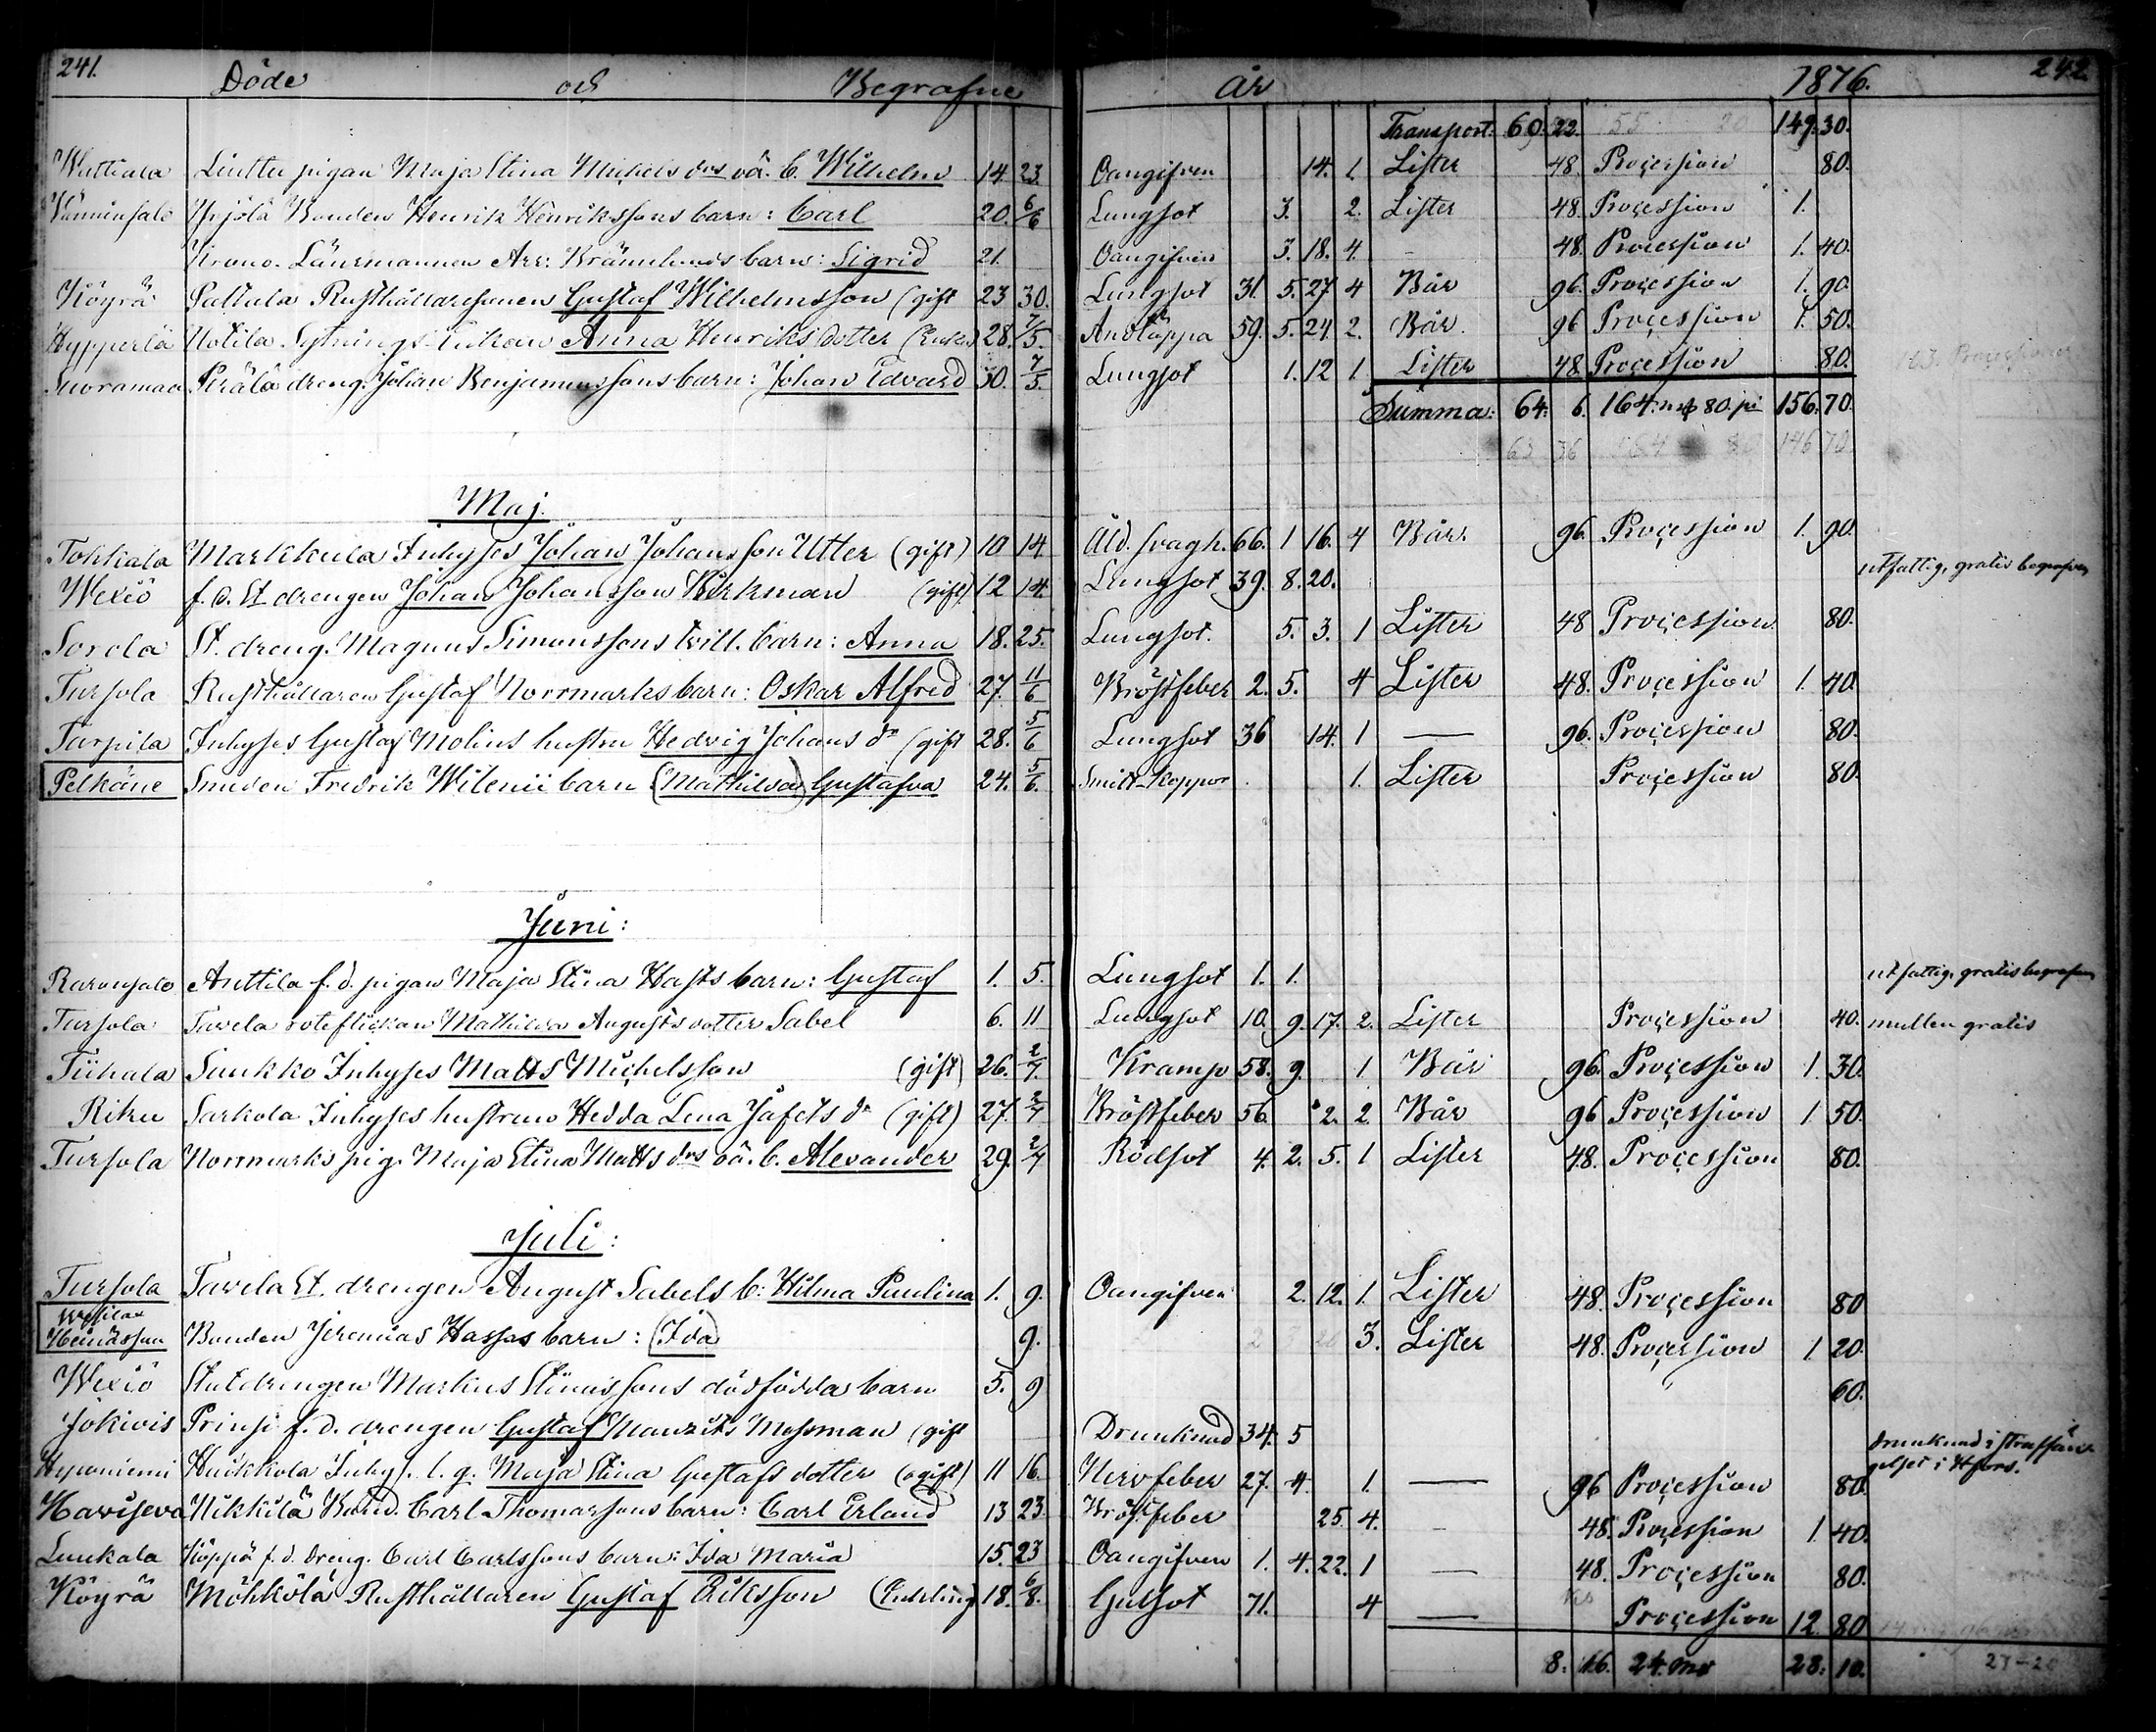 241. Döde och Begrafne År 1876. 242.
Transport: 60. 22. 149. 30.
Liuttu pigan Maja Stina Michels drs oä. b. Wilhelm 14 23. Oangifven 14. 1. Lister 48. Proçession 80.
Yrjölä Bonden Henrik Henrikssons barn: Carl 20. 6/6 Lungsot 3. 2. Lister 48. Proçession 1.
Krono. Länsmannen Arr: Brännlunds barn: Sigrid 21. Oangifven 3. 18. 4. - 48. Proçession 1. 40.
Köyrä Pattula Rusthållaresonen Gustaf Wilhelmsson (gift 23 30. Lungsot 31. 5. 27 4 Bår 96. Proçession 1. 90.
Hypperlä Uotila Sytnings Enkan Anna Henriks dotter (Enka) 28. 7/5. Andtäppa 59. 5. 24 2. Bår. 96 Proçession 1. 50.
Suoramaa Perälä dreng. Johan Benjaminssons barn: Johan Edvard 30. 7/5. Lungsot 1. 12 1 Lister 48 Proçession 80.
Summa: 64: 6. 164. mk 80. pi 156. 70.
63 36 164 80 146 70
Maj.
Tohkala Markkula Inhyses Johan Johansson Utter (gift) 10 14 Åld. svagh. 66. 1 16. 4 Bår. 96. Proçession 1. 90.
Wexiö f. d. St. drengen Johan Johansson Birkman (gift) 12 14. Lungsot 39. 8. 20. utfattig, gratis begrafven
Sorola St. dreng. Magnus Simonssons tvill. barn: Anna 18. 25. Lungsot. 5. 3. 1 Lister 48 Proçession 80.
Tursola Rusthållaren Gustaf Norrmarks barn: Oskar Alfred 27. 11/6 Bröstfeber 2. 5. 4 Lister 48. Proçession 1. 40.
Tarpila Inhyses Gustaf Molins hustru Hedvig Johans dr (gift 28. 5/6 Lungsot 36 14. 1 — 96. Proçession 80.
Pelkäne Smeden Fredrik Wilenii barn (Mathilda) Gustafva 24. 5/6. Smitt-koppor 1. Lister Proçession 80.
Juni:
Anttila f. d. pigan Maja Stina Hasts barn: Gustaf 1. 5. Lungsot 1. 1. utfattig, gratis begrafven
Tursola Tavela roteflickan Mathilda Augusts dotter Sabel 6. 11 Lungsot 10. 9. 17. 2. Lister Proçession 40. mullen gratis
Tiihala Suukko Inhyses Matts Michelsson (gift) 26. 2/7. Kramp 58. 9. 1 Bår 96. Proçession 1. 30.
Riku Sarkola Inhyses hustrun Hedda Lena Jafets dr (gift) 27. 2/7 Bröstfeber 56. 2. 2. Bår 96 Proçession 1 50.
Tursola Norrmarks pig. Maja Stina Matts drs oä. b. Alexander 29. 2/7 Rödsot 4. 2. 5. 1 Lister 48. Proçession 80.
Juli:
Tursola Tavela St. drengen August Sabels b: Hilma Paulina 1. 9. Oangifven 2. 12. 1. Lister 48. Proçession 80
Bonden Jeremias Hassas barn: (Ida) 9. 3. Lister 48. Proçession 1 20.
Wexiö Statdrengen Markus Stenissons dödfödda barn 5. 9 " 60.
Jokivis Prinsi f. d. drengen Gustaf Mauzits Mossman (gift Drunknad 34. 5 drunknad i straffän-
gelset i Hfors.
Hyponiemi Huikkola Inhys. l. g. Maja Stina Gustafs dotter (ogift) 11 16. Nervfeber 27. 4. 1. — 96 Proçession 80
Haviseva Nikkilä Bond. Carl Thomassons barn: Carl Erland 13 23. Bröstfeber 25 4. - 48. Proçession 1 40.
Luukala Köppä f. d. dreng. Carl Carlssons barn: Ida Maria 15. 23 Oangifven 1. 4. 22. 1 — 48. Proçession 80.
Köyrä Möhkölä Rusthållaren Gustaf Eriksson (Enkling) 18. 6/8. Gulsot 71. 4 — Proçession 12. 80
8. 16. 24. mk 28. 10.